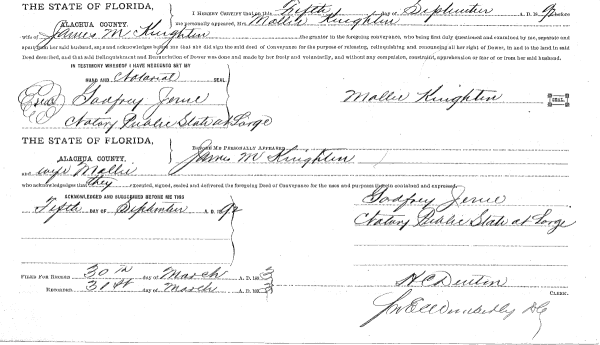 THE STATE OF FLORIDA, I HEREBY CERTIFY that on this Fifth day of September A. D. 1892 before
ALACHUA COUNTY. me personally appeared, Mrs. Mollie Knighten
wife of James M Knighten the grantor in the foregoing conveyance, who being first duly questioned and examined by me, separate and
apart from her said husband, say and acknowledge before me that she did sign the said deed of Conveyance for the purpose of releasing, relinquishing and renouncing all her right of Dower, in and to the land in said
Deed described, and that said Relinquishment and Renunciation of Dower was done and made by her freely and voluntarily, and without any compulsion, constraint, apprehension or fear of or from her said husband.
IN TESTIMONY WHEREOF I HAVE HEREUNTO SET MY
HAND AND Notarial SEAL
Seal Godfrey Mollie Knighten SEAL
Notary Public State at Large
THE STATE OF FLORIDA, BEFORE ME PERSONALLY APPEARED
ALACHUA COUNTY, James M Knighten
and wife Mollie
who acknowledges that they executed, signed, sealed and delivered the foregoing Deed of Conveyance for the uses and purposes therein contained and expressed.
ACKNOWLEDGED AND SUBSCRIBED BEFORE ME THIS Godfrey
Fifth DAY OF September A. D. 1892 Notary Public State at Large
FILED FOR RECORD 30th day of March A. D. 1893 H C Denton
RECORDED 31st day of March A. D. 1893 CLERK.
Wimberly D C